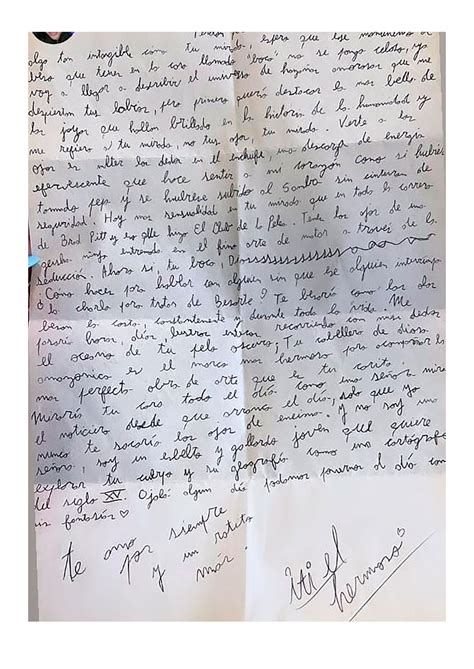 espera que ese monumento a
algo tan intangible como tu mirada,
beso que tienes en la cara llamado "boca" no se ponga celoso, ya
voy a llegar a describir el universo de hazañas amorosas que me
despiertan tus labios, pero primero quería destacar la más bella de
las joyas que hallan brillado en la historia de la humanidad y
me refiero a tu mirada, no tus ojos tu mirada. Verte a los
ojos es meter los dedos en el enchufe, una descarga de energía
efervescente que hace sentir a mi corazón como si hubiera
tomado pepsi y se hubiese subido al Samba sin cinturon de
seguridad. Hay más sensualidad en tu mirada que en todo la carrera
de Brad Pitt y eso que hizo El Club de La Pelea. Tenés los ojos de una
ninja entrenada en el fino arte de matar a través de la
seducción. Ahora si, tu boca,
Como haces para hablar con alguien sin que ese alguien interrumpa
la charla para tratar de Besarte? Te besaría como los dos
besan la costa, constantemente y durante toda la vida. Me
pasaría horas, días, lustros enteros recorriendo con mis dedos
el oceano de tu pelo oscuro, Tu cabellera de diosa
amazonica es el marco más hermoso para acompañar la
más perfecta obra de arte que es tu carita.
Miraría tu cara todo el día como una señora mira
el noticiero desde que arranca el día, solo que yo
nunca te sacaría los ojos de encima. Y no soy una
señora, soy un esbelto y gallardo joven que quiere
explorar tu cuerpo y su geografía como un cartógrafo
del siglo XV. Ojalá algun día podamos ponernos al día con
las fantasías ♡
te amo por siempre
y un ratito
más.
iti el
hermoso ♡